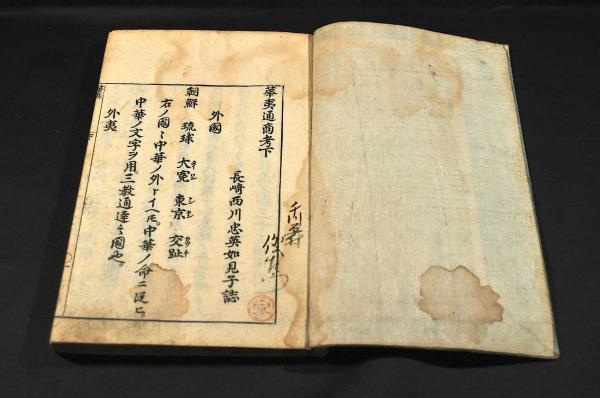 華夷通商考下
長崎西川忠英如見子誌
外國
朝鮮 琉球 大寃 東京 交趾
右ノ國ハ中華ノ外トイヘ𪜈中華ノ命ニ從ヒ
中華ノ文字ヲ用三教通達ノ國也
外夷